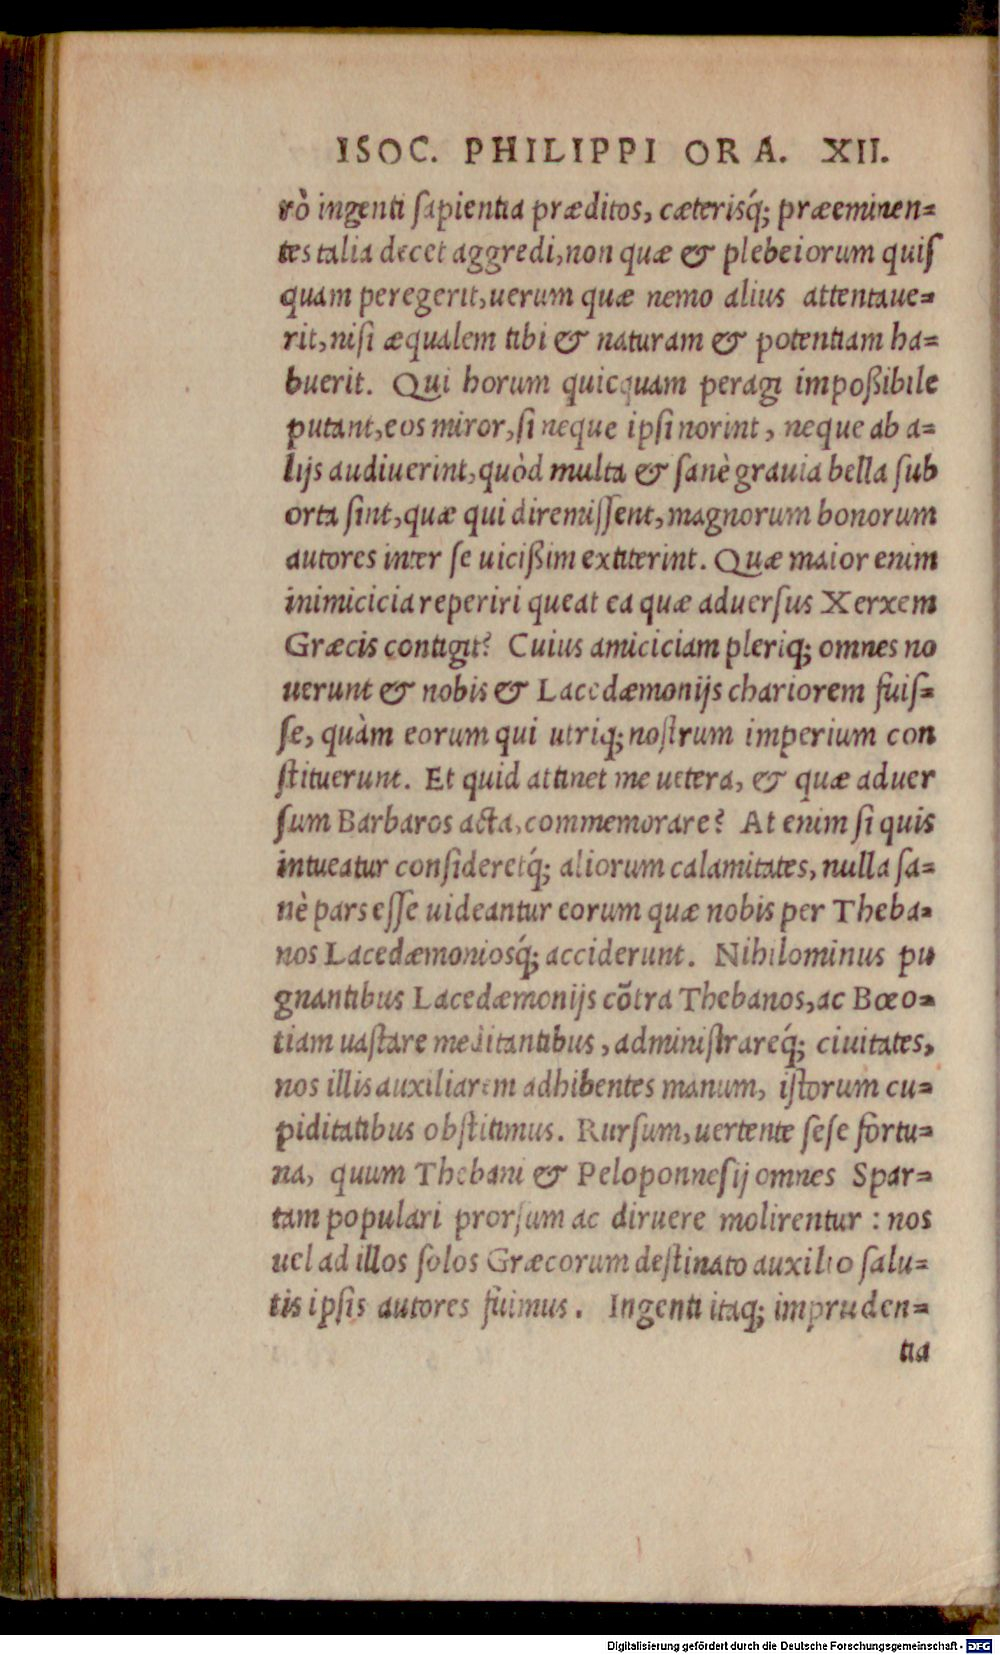 ISOC. PHILIPPI ORA. XII.
rò ingenti ſapientia præditos, cæterisq́; præeminen=
tes talia decet aggredi, non quæ & plebeiorum quiſ
quam peregerit, uerum quæ nemo alius attentaue=
rit, niſi æqualem tibi & naturam & potentiam ha=
buerit. Qui horum quicquam peragi impoßibile
putant, eos miror, ſi neque ipſi norint, neque ab a=
lijs audiuerint, quòd multa & ſanè grauia bella ſub
orta ſint, quæ qui diremiſſent, magnorum bonorum
autores inter ſe uicißim extiterint. Quæ maior enim
inimicicia reperiri queat ea quæ aduerſus Xerxem
Græcis contigit? Cuius amiciciam pleriq; omnes no
uerunt & nobis & Lacedæmonijs chariorem fuiſ=
ſe, quàm eorum qui utriq; noſtrum imperium con
ſtituerunt. Et quid attinet me uetera, & quæ aduer
ſum Barbaros acta, commemorare? At enim ſi quis
intueatur conſideretq́; aliorum calamitates, nulla ſa=
nè pars eſſe uideantur eorum quæ nobis per Theba=
nos Lacedæmoniosq́; acciderunt. Nihilominus pu
gnantibus Lacedæmonijs cõtra Thebanos, ac Bœo=
tiam uaſtare meditantibus, adminiſtrareq́; ciuitates,
nos illis auxiliarem adhibentes manum, iſtorum cu=
piditatibus obſtitimus. Rurſum, uertente ſeſe fortu=
na, quum Thebani & Peloponneſij omnes Spar=
tam populari prorſum ac diruere molirentur : nos
uel ad illos ſolos Græcorum deſtinato auxilio ſalu=
tis ipſis autores fuimus. Ingenti itaq; impruden=
tia
Digitalisierung gefördert durch die Deutsche Forschungsgemeinschaft - DFG